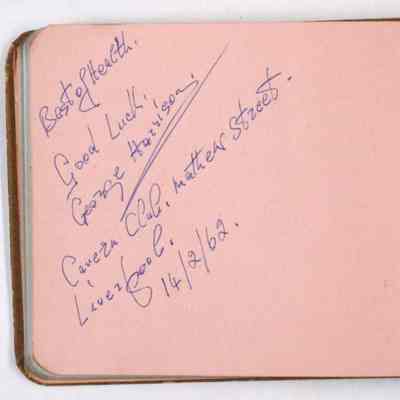 Best of Health.
Good Luck.
George Harrison.
Cavern Club. Mathew Street.
Liverpool.
14/2/62.